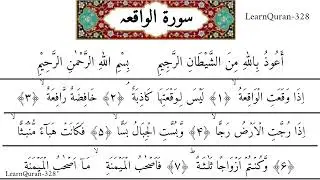 سورة الواقعہ
LearnQuran-328
أَعُوذُ بِاللهِ مِنَ الشَّيْطَانِ الرَّجِيمِ بِسْمِ اللهِ الرَّحْمٰنِ الرَّحِيْمِ
اِذَا وَقَعَتِ الْوَاقِعَةُ ﴿۱﴾ لَيْسَ لِوَقْعَتِهَا كَاذِبَةٌ ﴿۲﴾ خَافِضَةٌ رَّافِعَةٌ ﴿۳﴾
اِذَا رُجَّتِ الْاَرْضُ رَجًّا ﴿۴﴾ وَّبُسَّتِ الْجِبَالُ بَسًّا ﴿۵﴾ فَكَانَتْ هَبَآءً مُّنْۢبَثًّا
﴿۶﴾ وَّكُنْتُمْ اَزْوَاجًا ثَلٰثَةً ﴿۷﴾ فَاَصْحٰبُ الْمَيْمَنَةِ مَاۤ اَصْحٰبُ الْمَيْمَنَةِ
LearnQuran-328